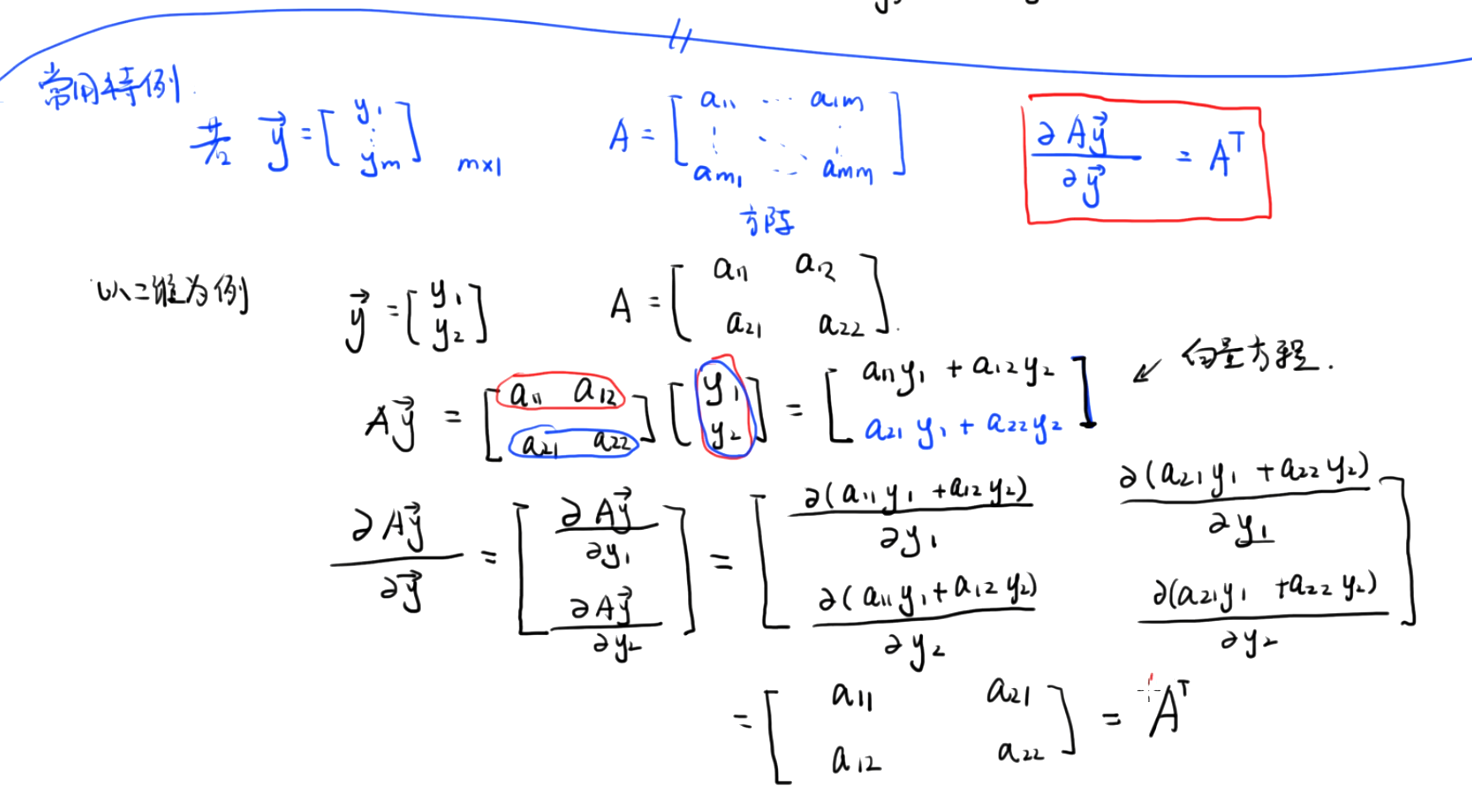 常用特例
若 y⃗ = [y₁ ⋮ yₘ] m×1 A = [a₁₁ ⋯ a₁ₘ ⋮ ⋱ ⋮ aₘ₁ ⋯ aₘₘ] ∂Ay⃗/∂y⃗ = Aᵀ
方阵
以二维为例 y⃗ = [y₁ y₂] A = [a₁₁ a₁₂ a₂₁ a₂₂].
Ay⃗ = [a₁₁ a₁₂ a₂₁ a₂₂] [y₁ y₂] = [a₁₁y₁ + a₁₂y₂ a₂₁y₁ + a₂₂y₂] ↙ 向量方程.
∂Ay⃗/∂y⃗ = [∂Ay⃗/∂y₁ ∂Ay⃗/∂y₂] = [∂(a₁₁y₁ + a₁₂y₂)/∂y₁ ∂(a₂₁y₁ + a₂₂y₂)/∂y₁ ∂(a₁₁y₁ + a₁₂y₂)/∂y₂ ∂(a₂₁y₁ + a₂₂y₂)/∂y₂]
= [a₁₁ a₂₁ a₁₂ a₂₂] = Aᵀ